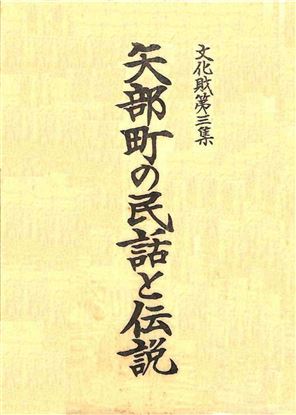 文化財第三集
矢部町の民話と伝説